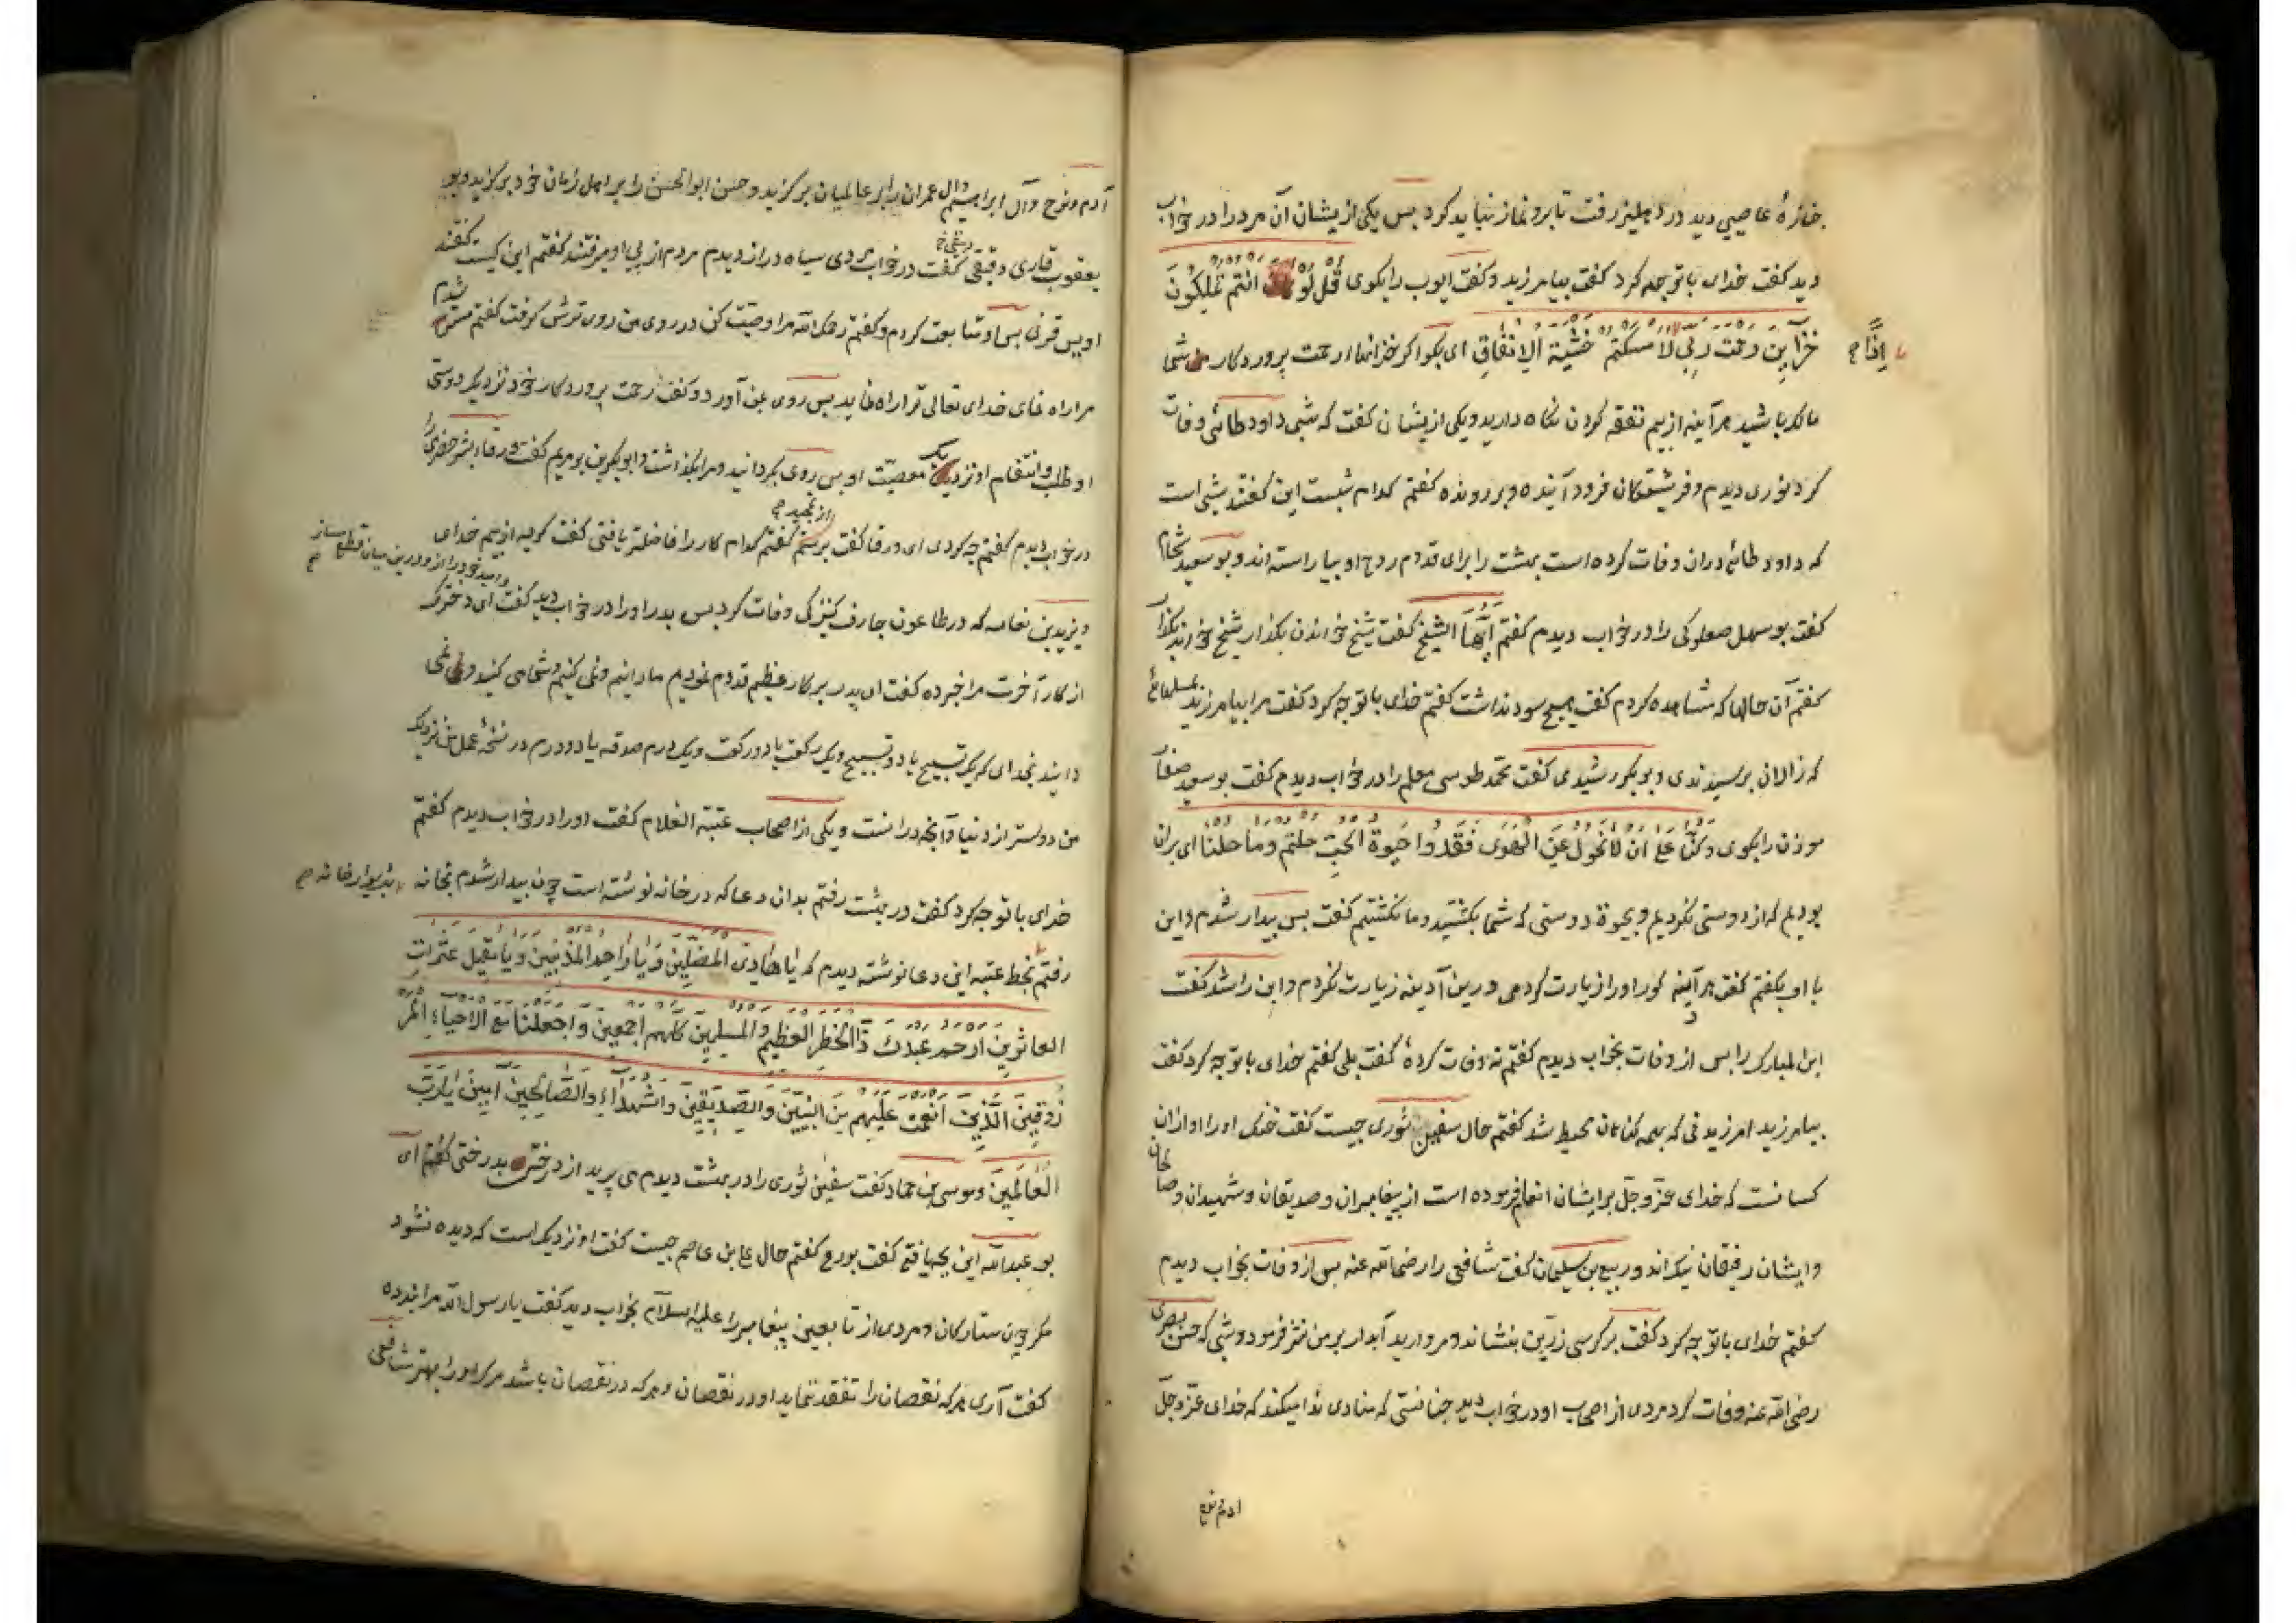 جنازهٔ عاصیی دید در دهلیز رفت تا برو نماز نباید کرد بس یکی ازیشان آن مرد را در خواب
دید کفت خدای با تو چه کرد کفت بیامرزید و کفت ایوب را بکوی قُل لَوْ انتم تملکون
خزاین رحمت ربی لامسکتم خشیة الانفاق ای بکو اکر خزانها ارحمت پروردکار من شما
اذًا ح
مالک باشید هر آینه از بیم نفقه کردن نکاه دارید و یکی ازیشان کفت که شبی داود طائی وفات
کرد نوری دیدم و فریشتکان فرود آینده و بر رونده کفتم کدام شبست این کفتند شبی است
که داود طائی دران وفات کرده است بهشت را برای قدوم روح او بیاراسته اند و بو سعید شحام
کفت بو سهل صعلوکی را در خواب دیدم کفتم ایها الشیخ کفت شیخ خواندن بکذار شیخ خواندن بکذار
کفتم آن حالها که مشاهده کردم کفت هیچ سود نداشت کفتم خدای با تو چه کرد کفت مرا بیامرزید
که زالان برسیدندی و بوبکر رشیدی کفت محمد طوسی معلم را در خواب دیدم کفت بو سعید صفار
موذن را بکوی وکنّا علی ان لا نحول عن الهوی فقد وا حیوة الحب حلتم وما حلنا ای بران
بودیم که از دوستی نکردیم و بحیوة دوستی که شما بکشتید و ما نکشتیم کفت بس بیدار شدم و این
با او بکفتم کفت هر آدینه کور او را زیارت کردمی و درین آدینه زیارت نکردم و ابن راشد کفت
ابن المبارک را بس از وفات بخواب دیدم کفتم نه وفات کردهٔ کفت بلی کفتم خدای با تو چه کرد کفت
بیامرزید امرزیدنی که بهمه کناهان محیط شد کفتم حال سفین ثوری چیست کفت خنک او را او ازان
کسانست که خدای عزّ وجلّ بر ایشان انعام فرموده است از پیغامبران و صدیقان و شهیدان و صالحان
وایشان رفیقان نیک اند و ربیع بن سلیمان کفت شافعی را رضی الله عنه بس از وفات بخواب دیدم
کفتم خدای با تو چه کرد کفت بر کرسی زرّین بنشاند و مروارید آبدار بر من نثر فرمود و شبی که حسن بصری
رضی الله عنه وفات کرد مردی از اصحاب او در خواب دید چنانستی که منادی ندا میکند که خدای عزّ وجلّ
ادم و نوح
آدم و نوح و آل ابراهیم و آل عمران را بر عالمیان بر کزید و حسن ابو الحسن را بر اهل زمان خود بر کزید و بو
یعقوب قاری دقیقی کفت در خواب مردی سیاه دراز دیدم مردم از پی او میرفتند کفتم این کیست کفتند
اویس قرنی بس او متابعت کردم و کفتم رحمک الله مرا وصیّت کن در روی من روی ترش کرفت کفتم مسترشدم
مرا راه نمای خدای تعالی ترا راه نماید بس روی بمن آورد و کفت رحمت پروردکار خود نزدیک دوستی
او طلب و انتقام او نزدیک معصیّت او بس روی بکردانید و مرا بکذاشت و ابو بکر بن بو مریم کفت ورقاء بشر حضری را
در خواب دیدم کفتم چه کردی ای ورقا کفت برستم کفتم کدام کار را فاضلتر یافتی کفت کریه از بیم خدای
ویزیدبن نعامه که در طاعون جارف کنیزکی وفات کرد بس بدر او را در خواب دید کفت ای دخترک
از کار آخرت مرا خبر ده کفت ای پدر بر کار عظیم قدوم نمودیم ما دانیم و نمی کنیم و شما می کنید و نمی
دانید بخدای که یک تسبیح یا دو تسبیح و یک رکعت یا دو رکعت و یک درم صدقه یا دو درم در نسخهٔ عمل من نزدیک
من دوستر از دنیا و آنچه دراست و یکی از اصحاب عتبة الغلام کفت او را در خواب دیدم کفتم
خدای با تو چه کرد کفت در بهشت رفتم بدان دعا که در خانه نوشته است چون بیدار شدم بخانه
رفتم بخط عتبه این دعا نوشته دیدم که یا هادی المضلین ویا راحم المذنبین ویا مقیل عثرات
العاثرین ارحم عبدک ذا الخطر العظیم والمسلمین کلهم اجمعین واجعلنا مع الاحیاء المر
زوقین الذین انعمت علیهم من النبیین والصدیقین والشهداء والصالحین آمین یا ربّ
العالمین و موسی بن حماد کفت سفین ثوری را در بهشت دیدم می پرید از درختی بدرختی کفتم ای
بو عبدالله این بچه یافتی کفت بورع کفتم حال علی بن عاصم چیست کفت او نزدیک است که دیده نشود
مکر چون ستارکان و مردی از تابعین پیغامبر را علیه السلام بخواب دید کفت یا رسول الله مرا پند ده
کفت آری هر که نقصان را تفقد ننماید او در نقصان و هر که در نقصان باشد مرک او را بهتر شافعی